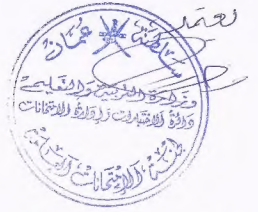 يعتمد
سلطنة عمان
وزارة التربية والتعليم
دائرة الاختبارات وإدارة الامتحانات
لجنة الامتحانات